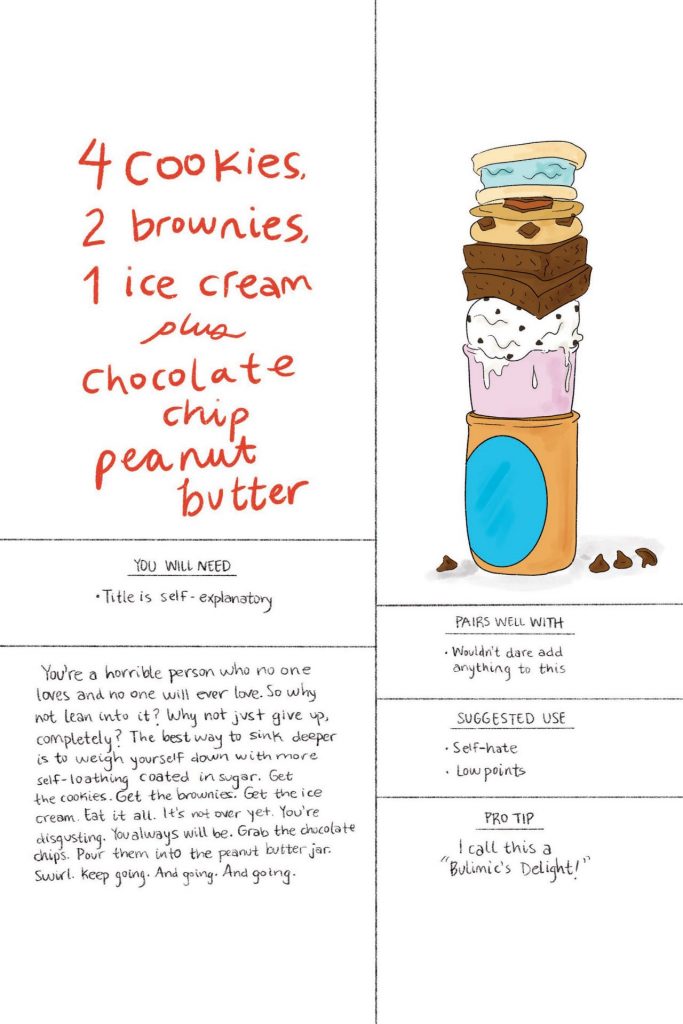 4 cookies,
2 brownies,
1 ice cream
plus
chocolate
chip
peanut
butter
YOU WILL NEED
• Title is self-explanatory
You're a horrible person who no one
loves and no one will ever love. So why
not lean into it? Why not just give up,
completely? The best way to sink deeper
is to weigh yourself down with more
self-loathing coated in sugar. Get
the cookies. Get the brownies. Get the ice
cream. Eat it all. It's not over yet. You're
disgusting. You always will be. Grab the chocolate
chips. Pour them into the peanut butter jar.
Swirl. Keep going. And going. And going.
PAIRS WELL WITH
• Wouldn't dare add
anything to this
SUGGESTED USE
• Self-hate
• Low points
PRO TIP
I call this a
"Bulimic's Delight!"